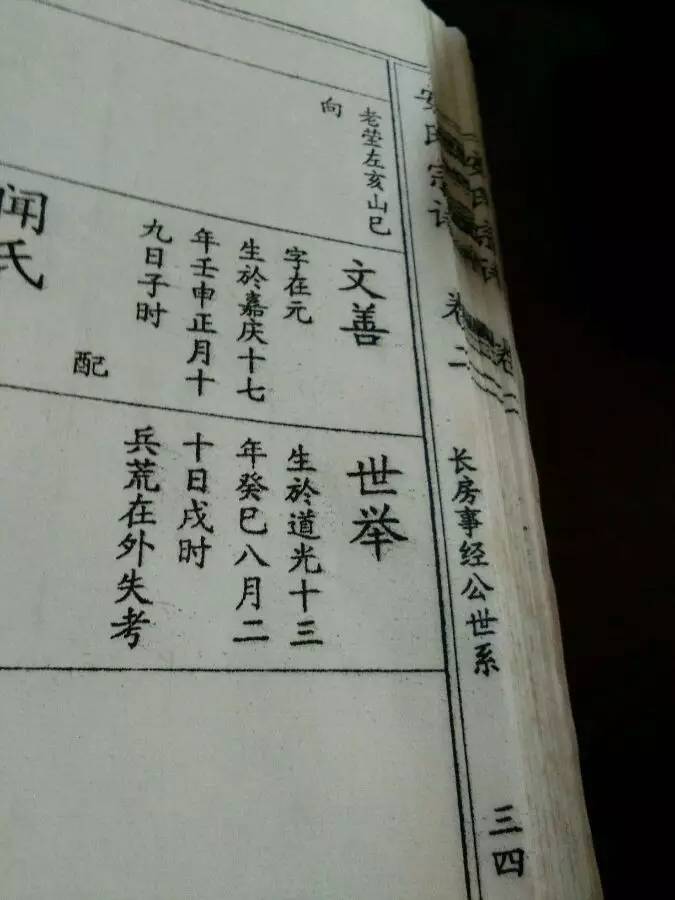 安氏宗谱
卷二
长房事经公世系
三四
老茔左亥山巳
向
文善
字在元
生於嘉庆十七
年壬申正月十
九日子时
配
闻氏
世举
生於道光十三
年癸巳八月二
十日戌时
兵荒在外失考